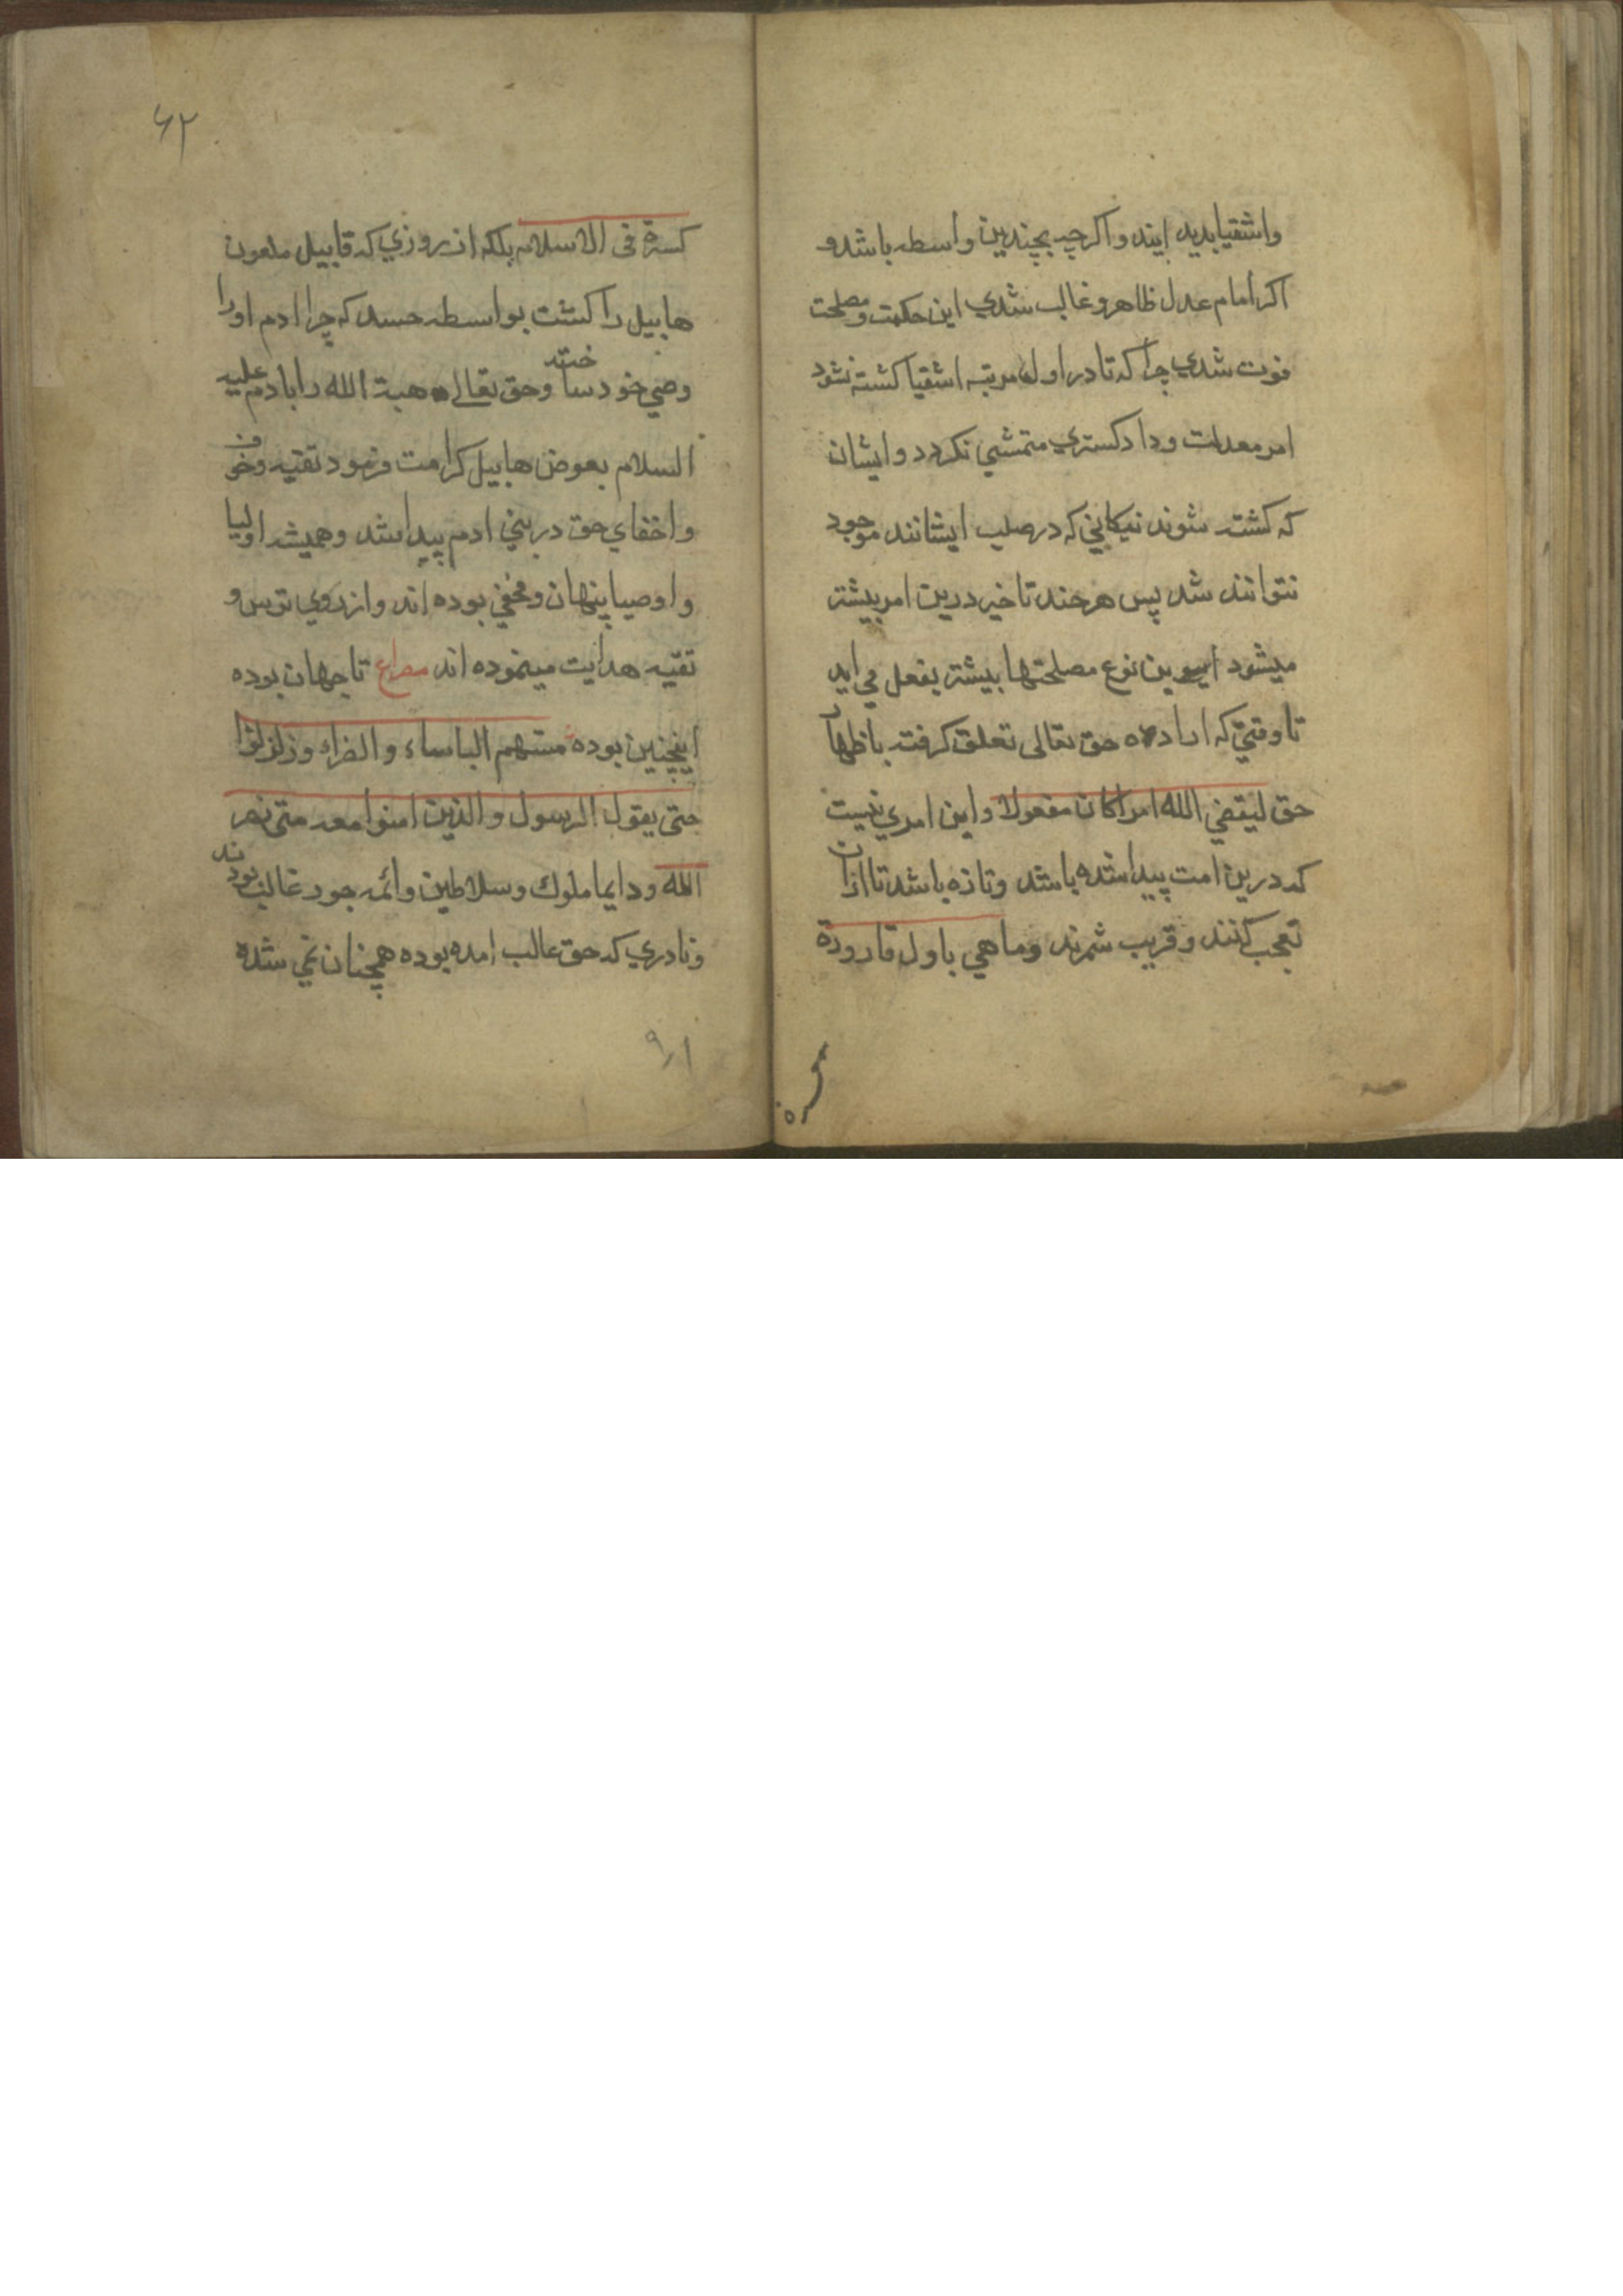 واشقیا بدید ایند و اکرچه بچندین واسطه باشد و
اکر امام عدل ظاهر و غالب شدي این حکمت و مصلحت
فوت شدي چرا که تا در اول مرتبه اشقیا کشته نشود
امر معدلت و داد کستري متمشي نکردد و ایشان
که کشته شوند نیکاني که در صلب ایشانند موجود
نتوانند شد پس هرچند تاخیر درین امر بیشتر
میشود این نوع مصلحتها بیشتر بفعل مي اید
تا وقتي که اراده حق تعالی تعلق کرفت باظهار
حق لیقضي الله امرا کان مفعولا و این امري نیست
که درین امت پیدا شده باشد و تازه باشد تا ازان
تعجب کنند و قریب شمرند وما هي باول قارورة
کسرة في الاسلام بلکه از روزي که قابیل ملعون
هابیل را کشت بواسطه حسد که چرا ادم اورا
وصي خود ساخته و حق تعالی هبة الله را بادم علیه
السلام بعوض هابیل کرامت فرمود تقیه و خوف
و اخفاي حق در بني ادم پیدا شد و همیشه اولیا
و اوصیا پنهان و مخفي بوده اند و از روي ترس و
تقیه هدایت مینموده اند مصراع تا جهان بوده
اینچنین بوده مستهم الباساء و الضراء و زلزلوا
حتی یقول الرسول و الذین امنوا معه متی نصر
الله و دایما ملوك و سلاطین و ائمه جور غالب بودند
و نادري که حق غالب امده بوده همچنان نمي شده
۶۲